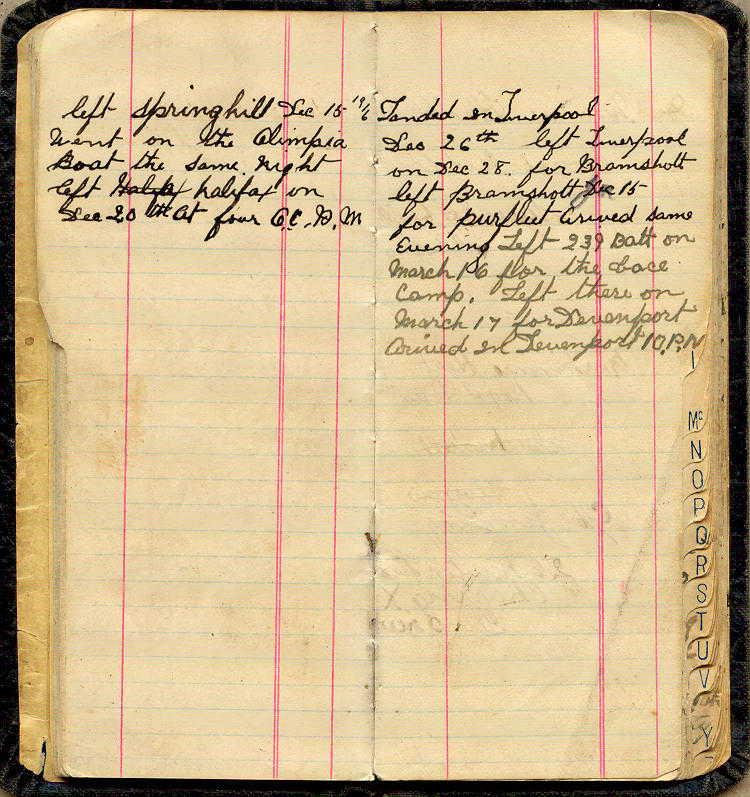 left Springhill Dec 15 1916
Went on the Olimpia
Boat the same Night
left Halifax halifax on
Dec 20th At four O.C. P.M
Landed in Liverpool
Dec 26th left Liverpool
on Dec 28.. for Bramshott
left Bramshott Dec 15
for purfleet arived same
Evening Left 239 Batt on
March 16 for the bace
Camp. Left there on
March 17 for Devenport
Arived in Devenport 10,P.M
Mc
N
O
P
Q
R
S
T
U
V
Y